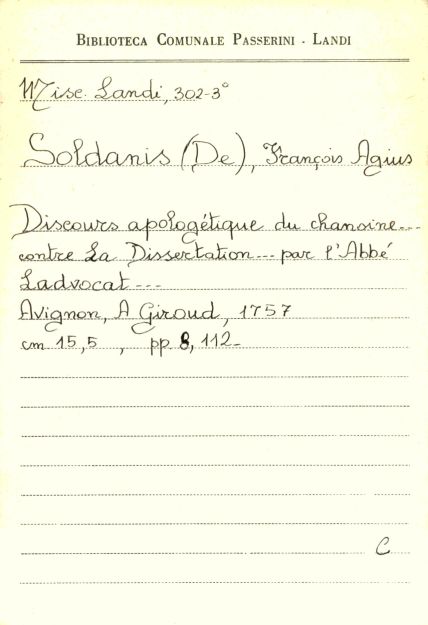 BIBLIOTECA COMUNALE PASSERINI - LANDI
Misc. Landi, 302-3°
Soldanis (De), François Agius
Discours apologétique du chanoine...
contre La Dissertation --- par l'Abbé
Ladvocat ---
Avignon, A Giroud, 1757
cm 15,5 , pp 8, 112-
C